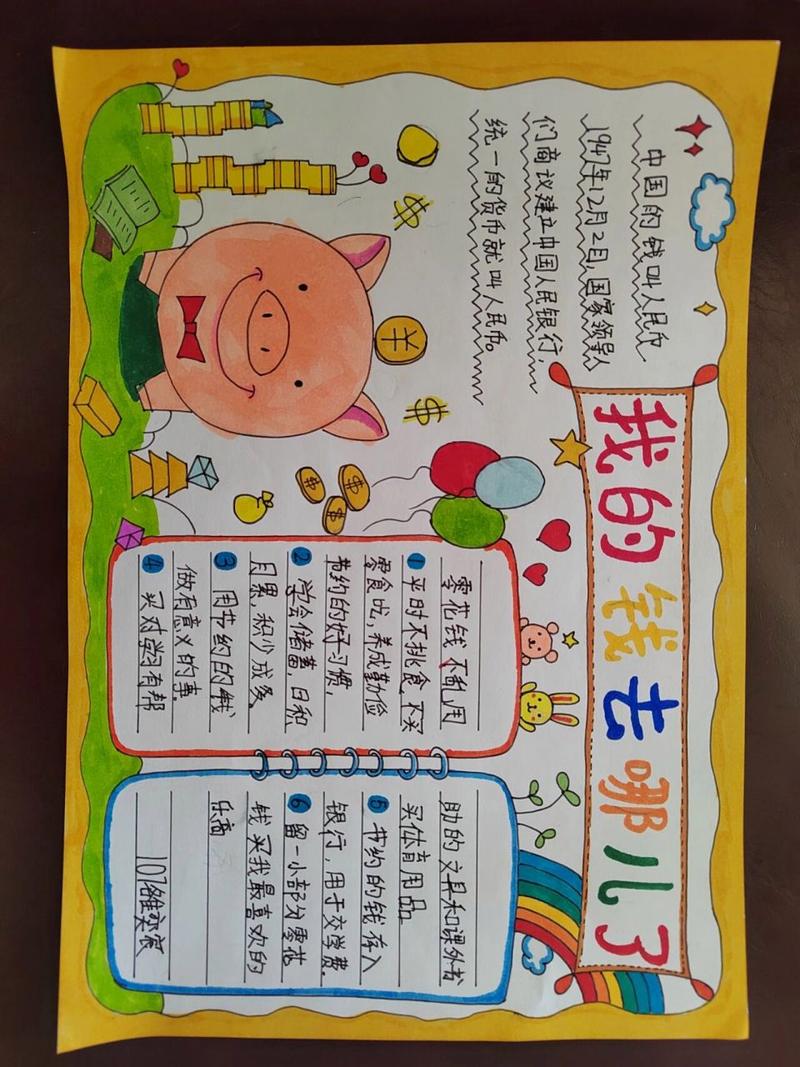 我的钱去哪儿了
中国的钱叫人民币
1947年12月2日，国家领导人
们商议建立中国人民银行，
统一的货币就叫人民币。
$
¥
$
$
$
$
零花钱不乱用
1 平时不挑食，不买
零食吃，养成勤俭
节约的好习惯，
2 学会储蓄，日积
月累，积少成多。
3 用节约的钱
做有意义的事.
4 买对学习有帮
助的文具和课外书
买体育用品
5 节约的钱存入
银行，用于交学费.
6 留一小部分零花
钱买我最喜欢的
乐高
107